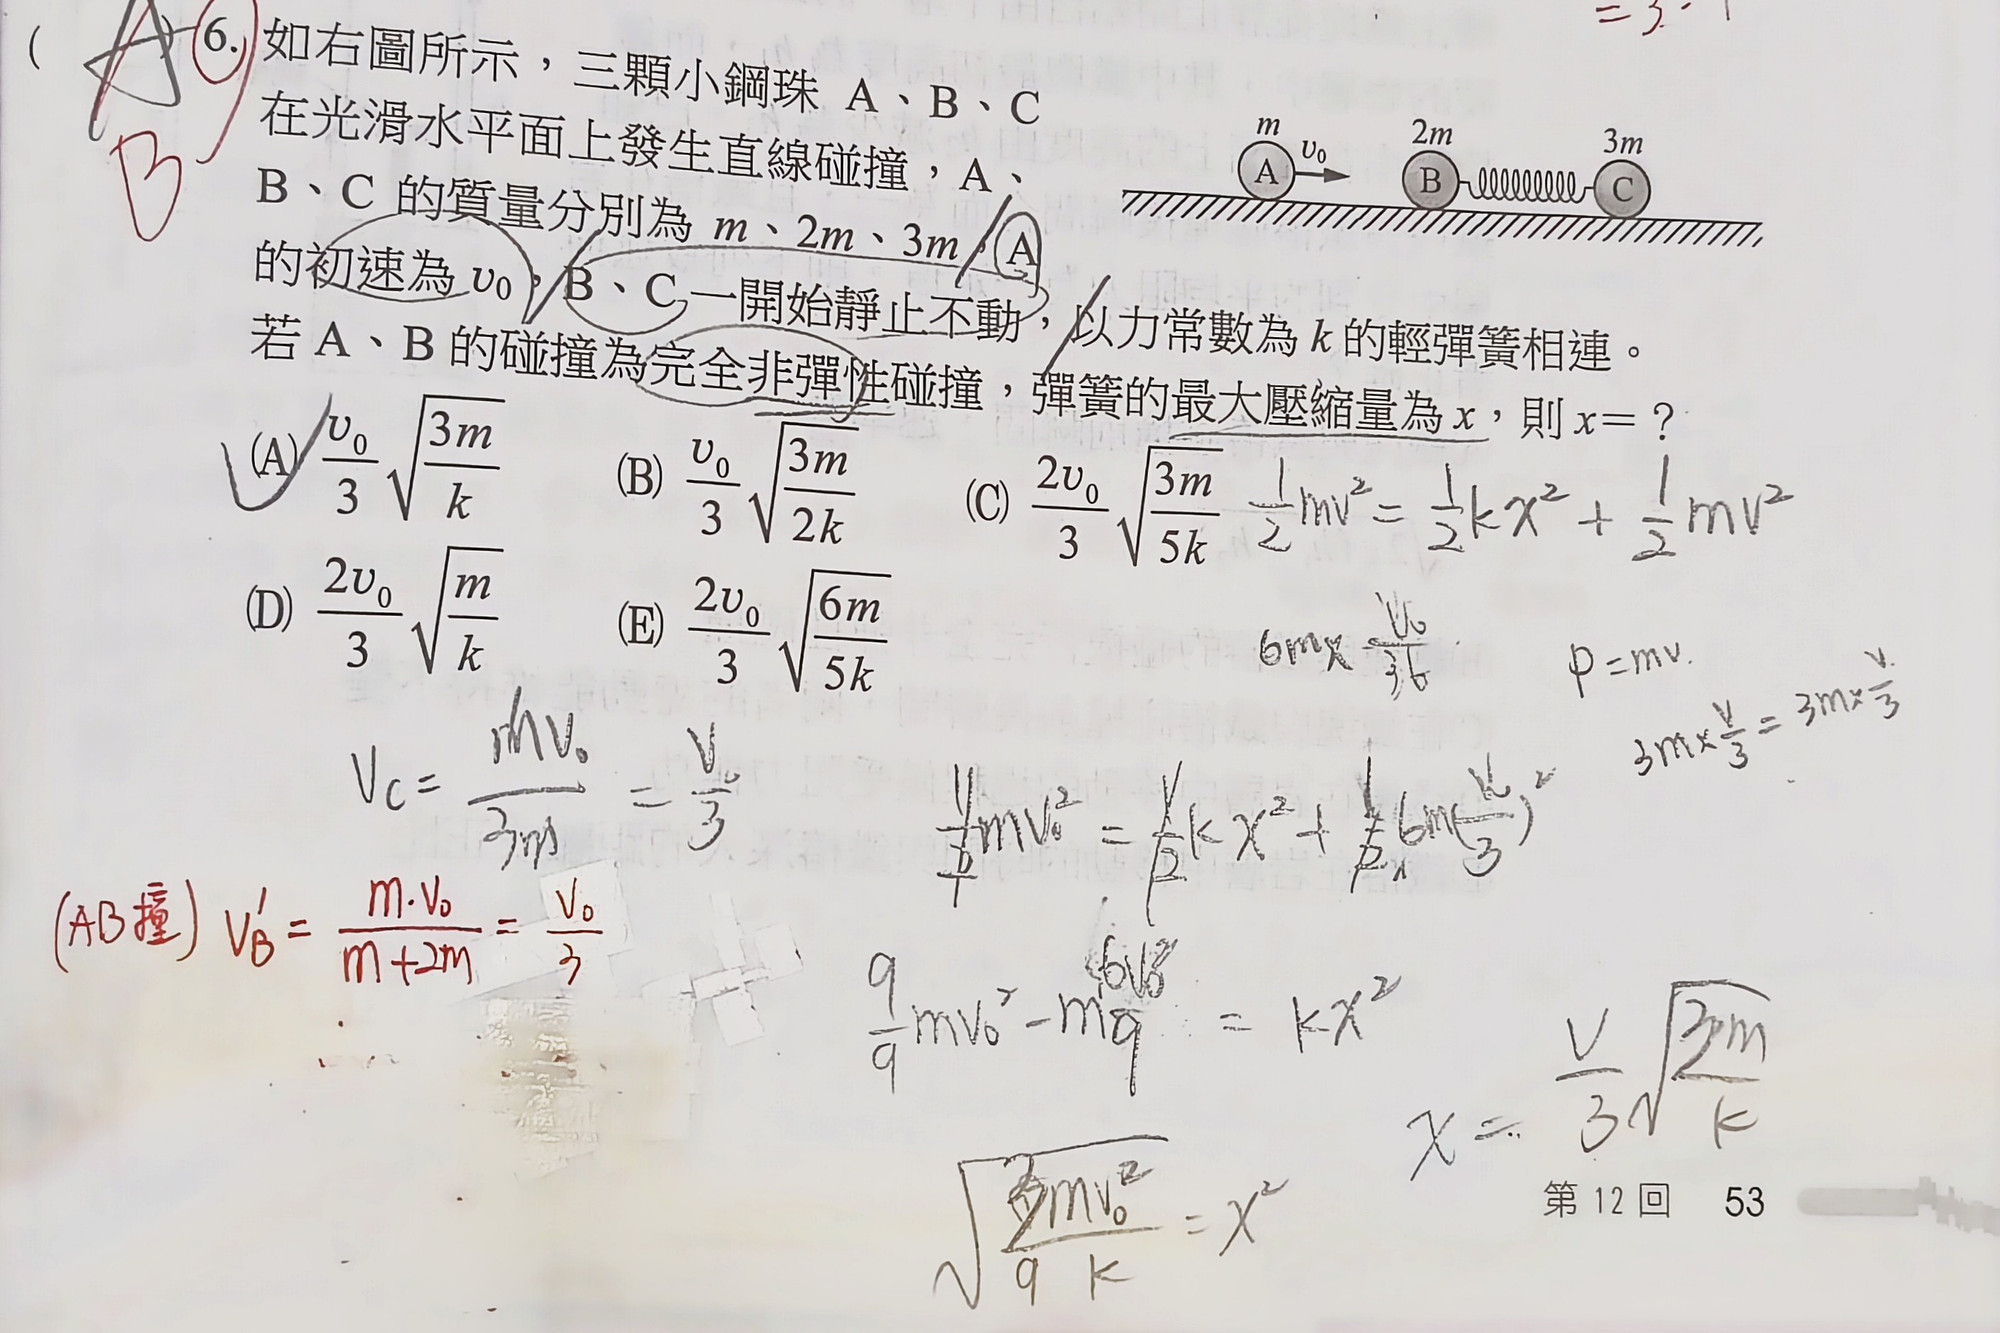 = 3 · 1
( A ) 6. 如右圖所示，三顆小鋼珠 A、B、C
B
在光滑水平面上發生直線碰撞，A、
B、C 的質量分別為 m、2m、3m，A
的初速為 v₀，B、C 一開始靜止不動，以力常數為 k 的輕彈簧相連。
若 A、B 的碰撞為完全非彈性碰撞，彈簧的最大壓縮量為 x，則 x＝？
m v₀ 2m 3m
A B C
(A) v₀/3 √(3m/k) (B) v₀/3 √(3m/2k) (C) 2v₀/3 √(3m/5k)
(D) 2v₀/3 √(m/k) (E) 2v₀/3 √(6m/5k)
1/2 mv² = 1/2 kx² + 1/2 mv²
P = mv.
3m × v/3 = 3m × v/3
Vc = mv₀/3m = v₀/3
1/2 mv₀² = 1/2 kx² + 1/2 6m(v₀/3)²
(AB撞) V_B' = m·V₀/(m+2m) = V₀/3
9/9 mv₀² - m 6v₀²/9 = kx²
√(3mv₀²/9k) = x²
x = v/3 √(3m/k)
第 12 回 53